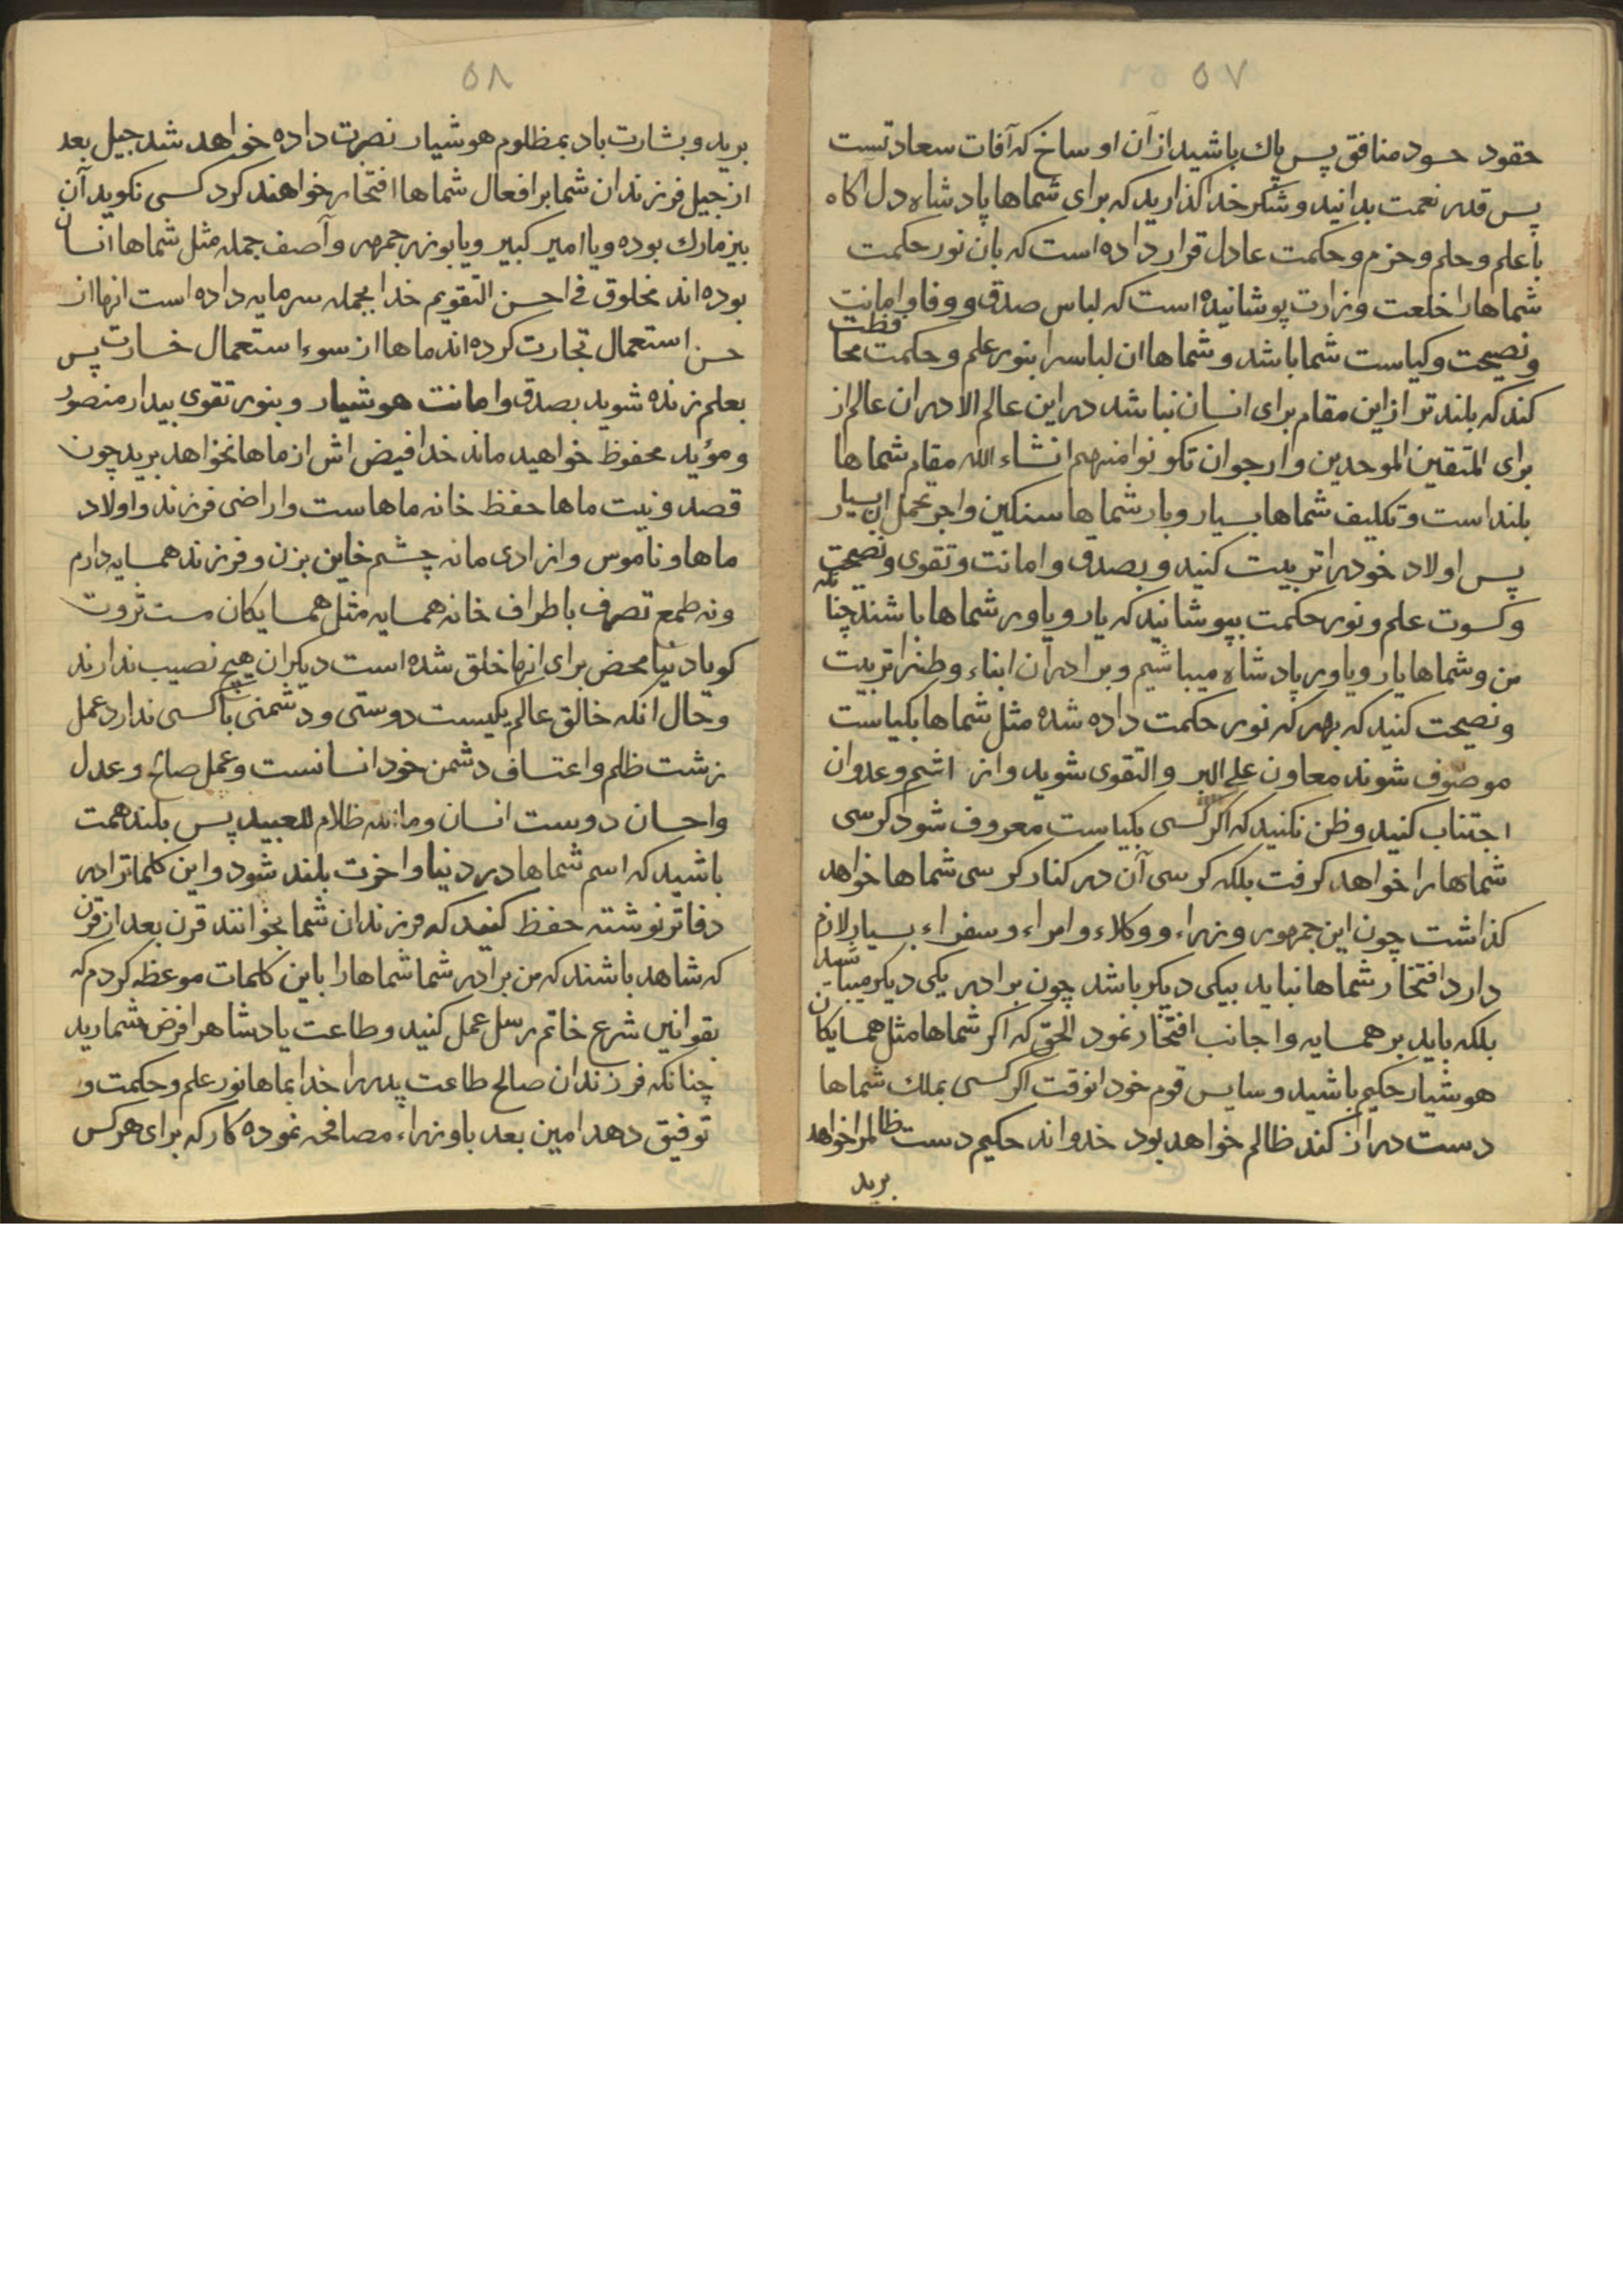 ٥٧
حقود حسود منافق پس پاك باشيد از آن اوساخ كه آفات سعادتست
پس قدر نعمت بدانيد و شكر خدا كذاريد كه براى شماها پادشاه دل آكاه
با علم و حلم و حزم و حكمت عادل قرار داده است كه بان نور حكمت
شماها را خلعت وزارت پوشانيده است كه لباس صدق و وفا و امانت
و نصيحت و كياست شما باشد و شماها ان لباسرا بنور علم و حكمت محافظت
كند كه بلند تر از اين مقام براى انسان نباشد در اين عالم الا در ان عالم از
براى المتقين الموحدين و ارجو ان تكونوا منهم انشاء الله مقام شماها
بلند است و تكليف شماها بسيار و بار شماها سنكين و اجر تحمل ان بسيار
پس اولاد خود را تربيت كنيد و بصدق و امانت و تقوى و نصيحت
و كسوت علم و نور حكمت بپوشانيد كه يار و ياور شماها باشند چنانكه
من و شماها يار و ياور پادشاه ميباشيم و برادران ابناء وطنرا تربيت
و نصيحت كنيد كه بهر كه نور حكمت داده شده مثل شماها بكياست
موصوف شوند معاون على البر و التقوى شويد و از اشم و عدوان
اجتناب كنيد و ظن نكنيد كه اكر كسى بكياست معروف شود كرسى
شماها را خواهد كرفت بلكه كرسى آن در كنار كرسى شماها خواهد
كذاشت چون اين جمهور وزراء و وكلاء و امراء و سفراء بسيار لازم
دارد افتخار شماها نبايد بيكى ديكر باشد چون برادر يكى ديكر ميباشيد
بلكه بايد بر همسايه و اجانب افتخار نمود الحق كه اكر شماها مثل همسايكان
هوشيار حكيم باشيد و سايس قوم خود انوقت اكر كسى بملك شماها
دست دراز كند ظالم خواهد بود خدواند حكيم دست ظالمرا خواهد
بريد
٥٨
بريد و بشارت باد بمظلوم هوشيار نصرت داده خواهد شد جيل بعد
از جيل فرزندان شما بر افعال شماها افتخار خواهند كرد كسى نكويد آن
بيزمارك بوده و يا امير كبير و يا بوزرجمهر و آصف جمله مثل شماها انسان
بوده اند مخلوق فى احسن التقويم خدا بجمله سرمايه داده است انها از
حسن استعمال تجارت كرده اند ماها از سوء استعمال خسارت پس
بعلم زنده شويد بصدق و امانت هوشيار و بنور تقوى بيدار منصور
و مؤيد محفوظ خواهيد ماند خدا فيض اش از ماها نخواهد بريد چون
قصد و نيت ماها حفظ خانه ماهاست و اراضى فرزند و اولاد
ماها و ناموس و ازادى ما نه چشم خاين بزن و فرزند همسايه دارم
و نه طمع تصرف باطراف خانه همسايه مثل همسايكان مست ثروت
كويا دنيا محض براى انها خلق شده است ديكران هيچ نصيب ندارند
و حال انكه خالق عالم يكيست دوستى و دشمنى با كسى ندارد عمل
زشت ظلم و اعتساف دشمن خود انسانست و عمل صالح و عدل
و احسان دوست انسان و ما الله ظلام للعبيد پس بلند همت
باشيد كه اسم شماها در دنيا و اخرت بلند شود و اين كلماترا در
دفاتر نوشته حفظ كنيد كه فرزندان شما بخوانند قرن بعد از قرن
كه شاهد باشند كه من برادر شما شماها را باين كلمات موعظه كردم كه
بقوانين شرع خاتم رسل عمل كنيد و طاعت پادشاهرا فرض شماريد
چنانكه فرزندان صالح طاعت پدررا خدا بماها نور علم و حكمت و
توفيق دهد امين بعد با وزراء مصافحه نموده كاركه براى هركس